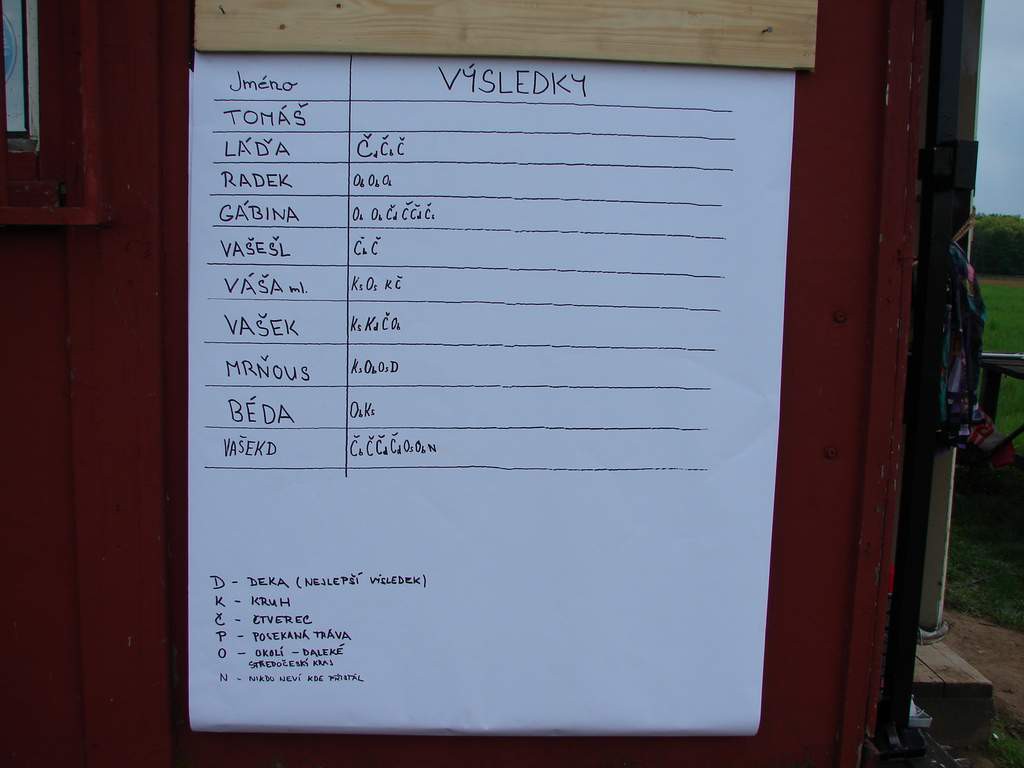 Jméno VÝSLEDKY
TOMÁŠ
LÁĎA Čd Čh Č
RADEK Oh Oh Oh
GÁBINA Oh Oh Čd Č Čd Čs
VAŠEŠL Čh Č
VÁŠA ml. Ks Os K Č
VAŠEK Ks Kd Č Oh
MRŇOUS Ks Oh Os D
BÉDA Oh Ks
VAŠEK D Čh Č Čd Čd Os Oh N
D - DEKA (NEJLEPŠÍ VÝSLEDEK)
K - KRUH
Č - ČTVEREC
P - POSEKANÁ TRÁVA
O - OKOLÍ - DALEKÉ
STŘEDOČESKÝ KRAJ
N - NIKDO NEVÍ KDE PŘISTÁL